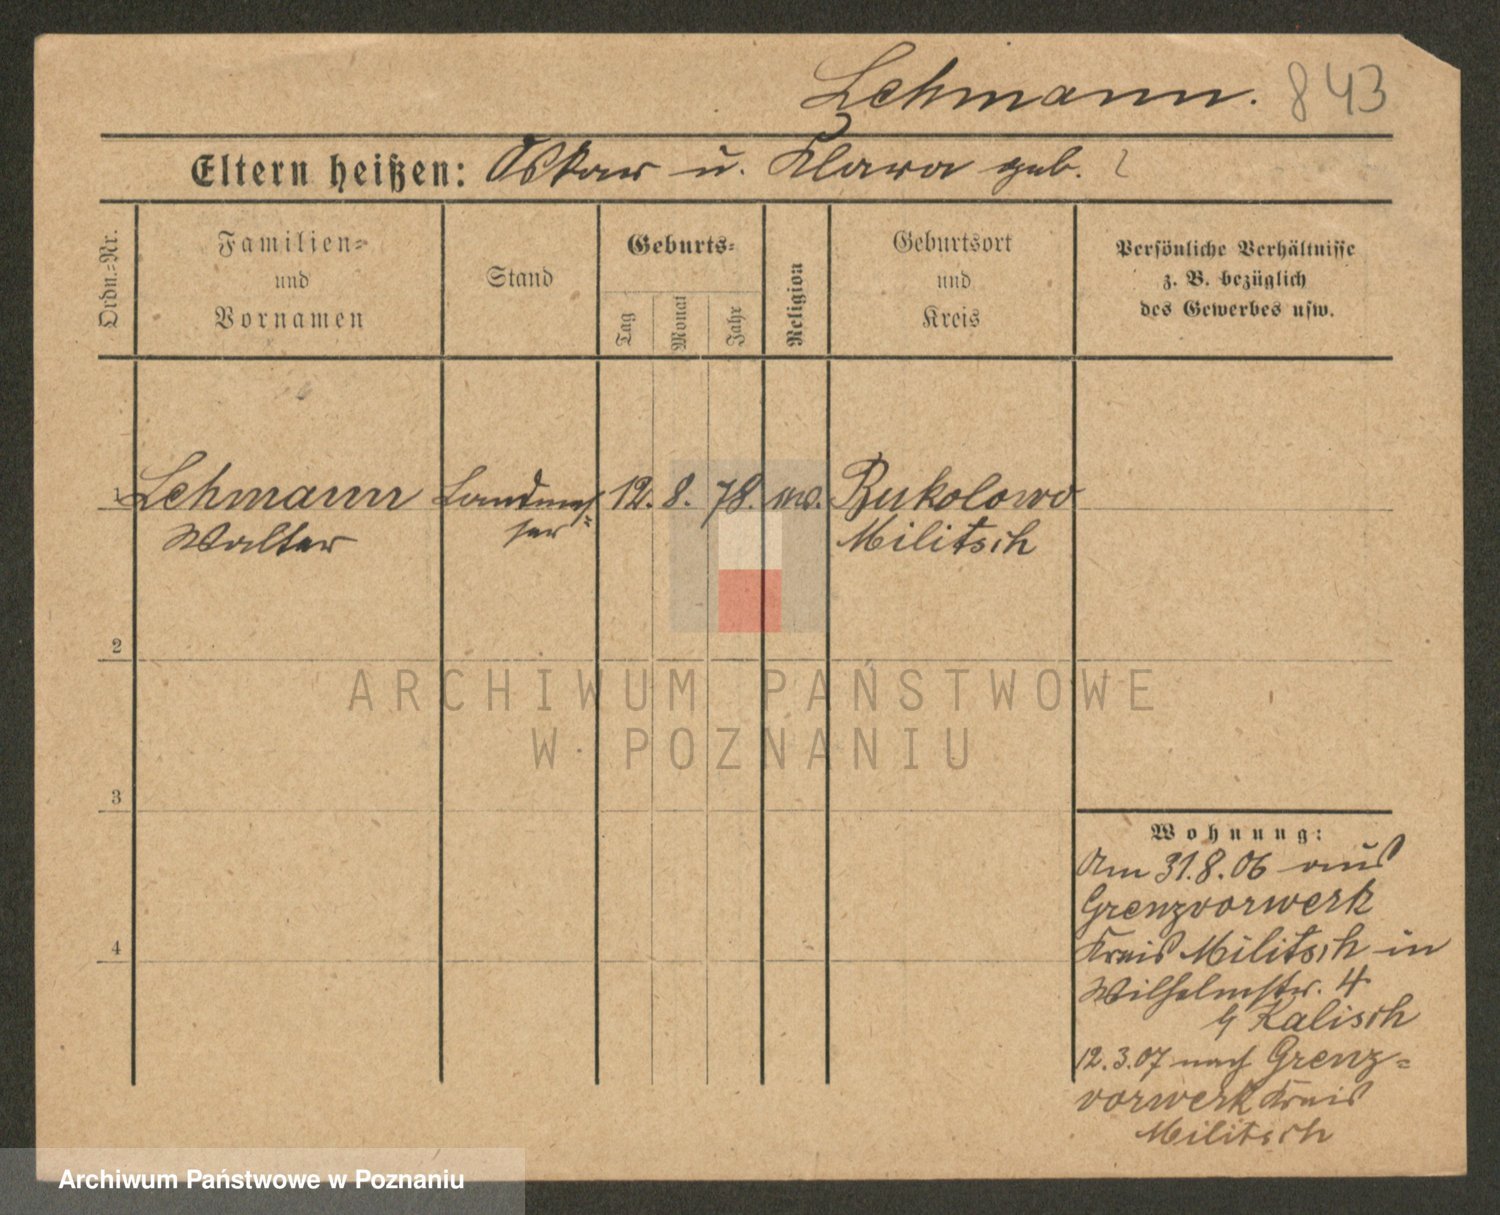 Lehmann. 843
Eltern heißen: Oskar u. Klara geb. ?
Ordn.-Nr.
Familien-
und
Vornamen
Stand
Geburts-
Tag
Monat
Jahr
Religion
Geburtsort
und
Kreis
Persönliche Verhältnisse
z. B. bezüglich
des Gewerbes usw.
1 Lehmann Landmes= 12. 8. 78. Bukolowo
Walter ser Militsch
2
3
4
Wohnung:
Am 31.8.06 aus
Grenzvorwerk
Kreis Militsch in
Wilhelmstr. 4
b/ Kalisch
12.3.07 nach Grenz=
vorwerk Kreis
Militsch
ARCHIWUM PAŃSTWOWE
W POZNANIU
Archiwum Państwowe w Poznaniu